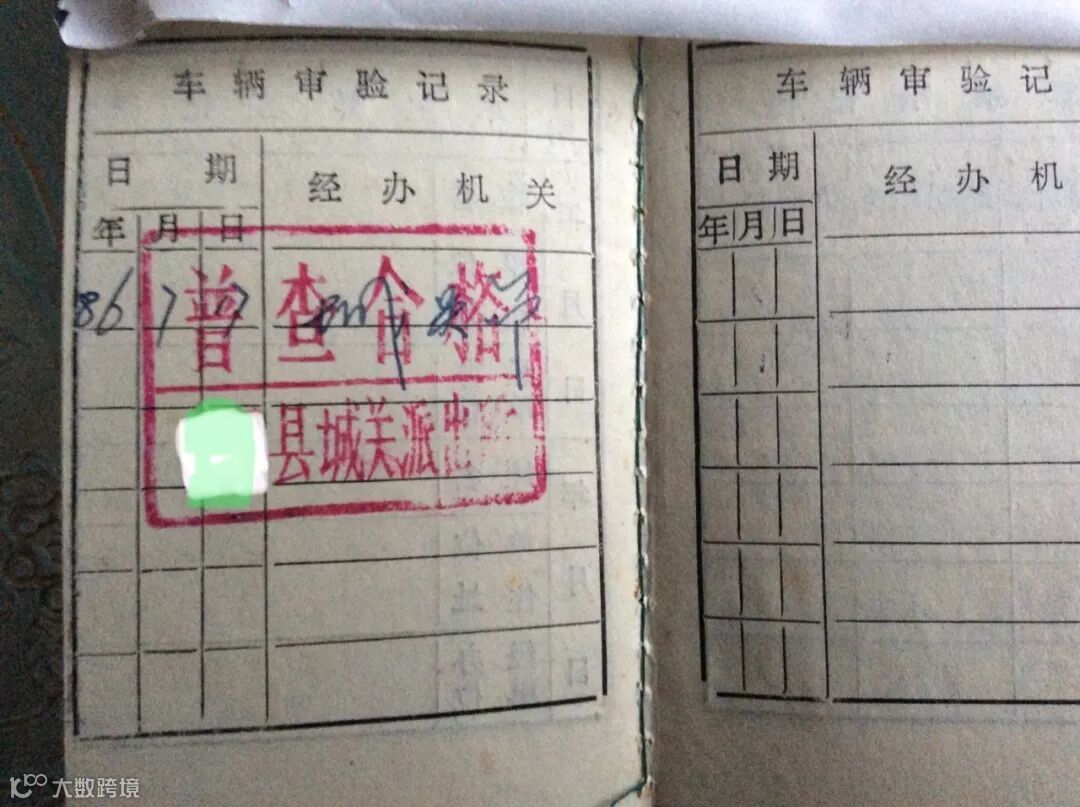 车辆审验记录
日期
经办机关
年月日
86 7
普查合格
县城关派出所
车辆审验记
日期
经办机
年月日
大数跨境